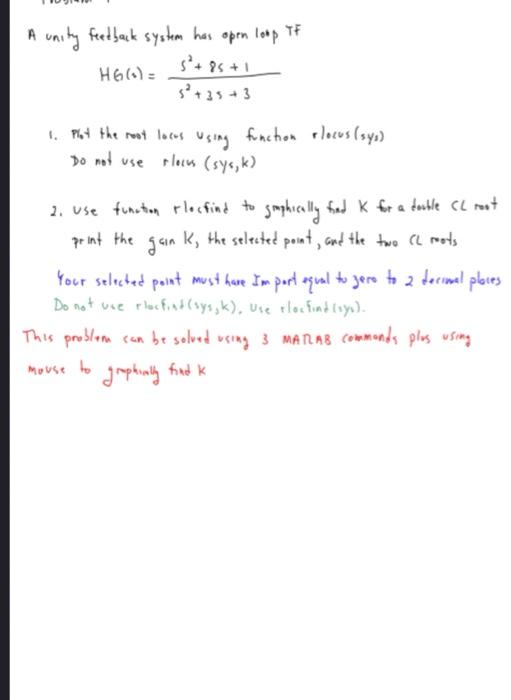 A unity feedback system has open loop TF
HG(s) = s² + 8s + 1
s² + 3s + 3
1. Plot the root locus using function rlocus(sys)
Do not use rlocus (sys,k)
2. Use function rlocfind to graphically find K for a double CL root
print the gain K, the selected point, and the two CL roots
Your selected point must have Im part equal to zero to 2 decimal places
Do not use rlocfind(sys,k). Use rlocfind(sys).
This problem can be solved using 3 MATLAB commands plus using
mouse to graphically find K